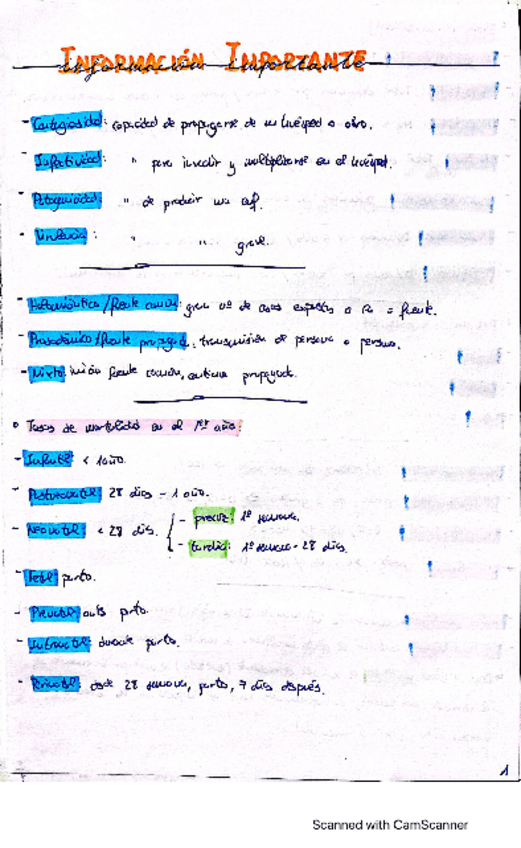 INFORMACIÓN IMPORTANTE
- Contagiosidad: capacidad de propagarse de un huésped a otro.
- Infectividad: " para invadir y multiplicarse en el huésped.
- Patogenicidad: " de producir una enf.
- Virulencia: " " grave.
- Holomiántica/fuente común: gran nº de casos expuestos a la = fuente.
- Prosodémica/fuente propagada: transmisión de persona a persona.
- Mixta: inicio fuente común, continua propagada.
• Tasas de mortalidad en el 1er año:
- Infantil < 1 año.
- Postneonatal: 28 días - 1 año.
- Neonatal: < 28 días.
- precoz: 1ª semana.
- tardía: 1ª semana - 28 días.
- Fetal: parto.
- Prenatal: antes parto.
- Intranatal: durante parto.
- Perinatal: desde 28 semanas, parto, 7 días después.
1
Scanned with CamScanner